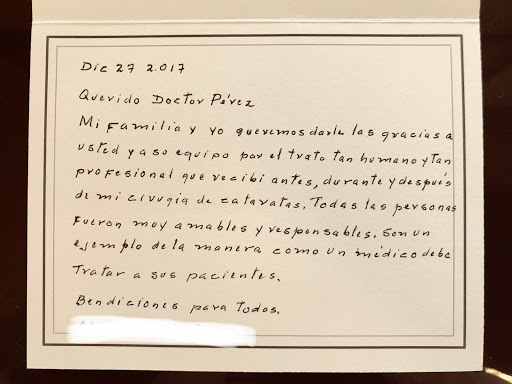 Dic 27 2.017
Querido Doctor Pérez
Mi Familia y yo queremos darle las gracias a
usted y a so equipo por el trato tan humano y tan
profesional que recibi antes, durante y después
de mi cirugia de cataratas. Todas las personas
fueron muy amables y responsables. Son un
ejemplo de la manera como un médico debe
Tratar a sus pacientes.
Bendiciones para Todos.